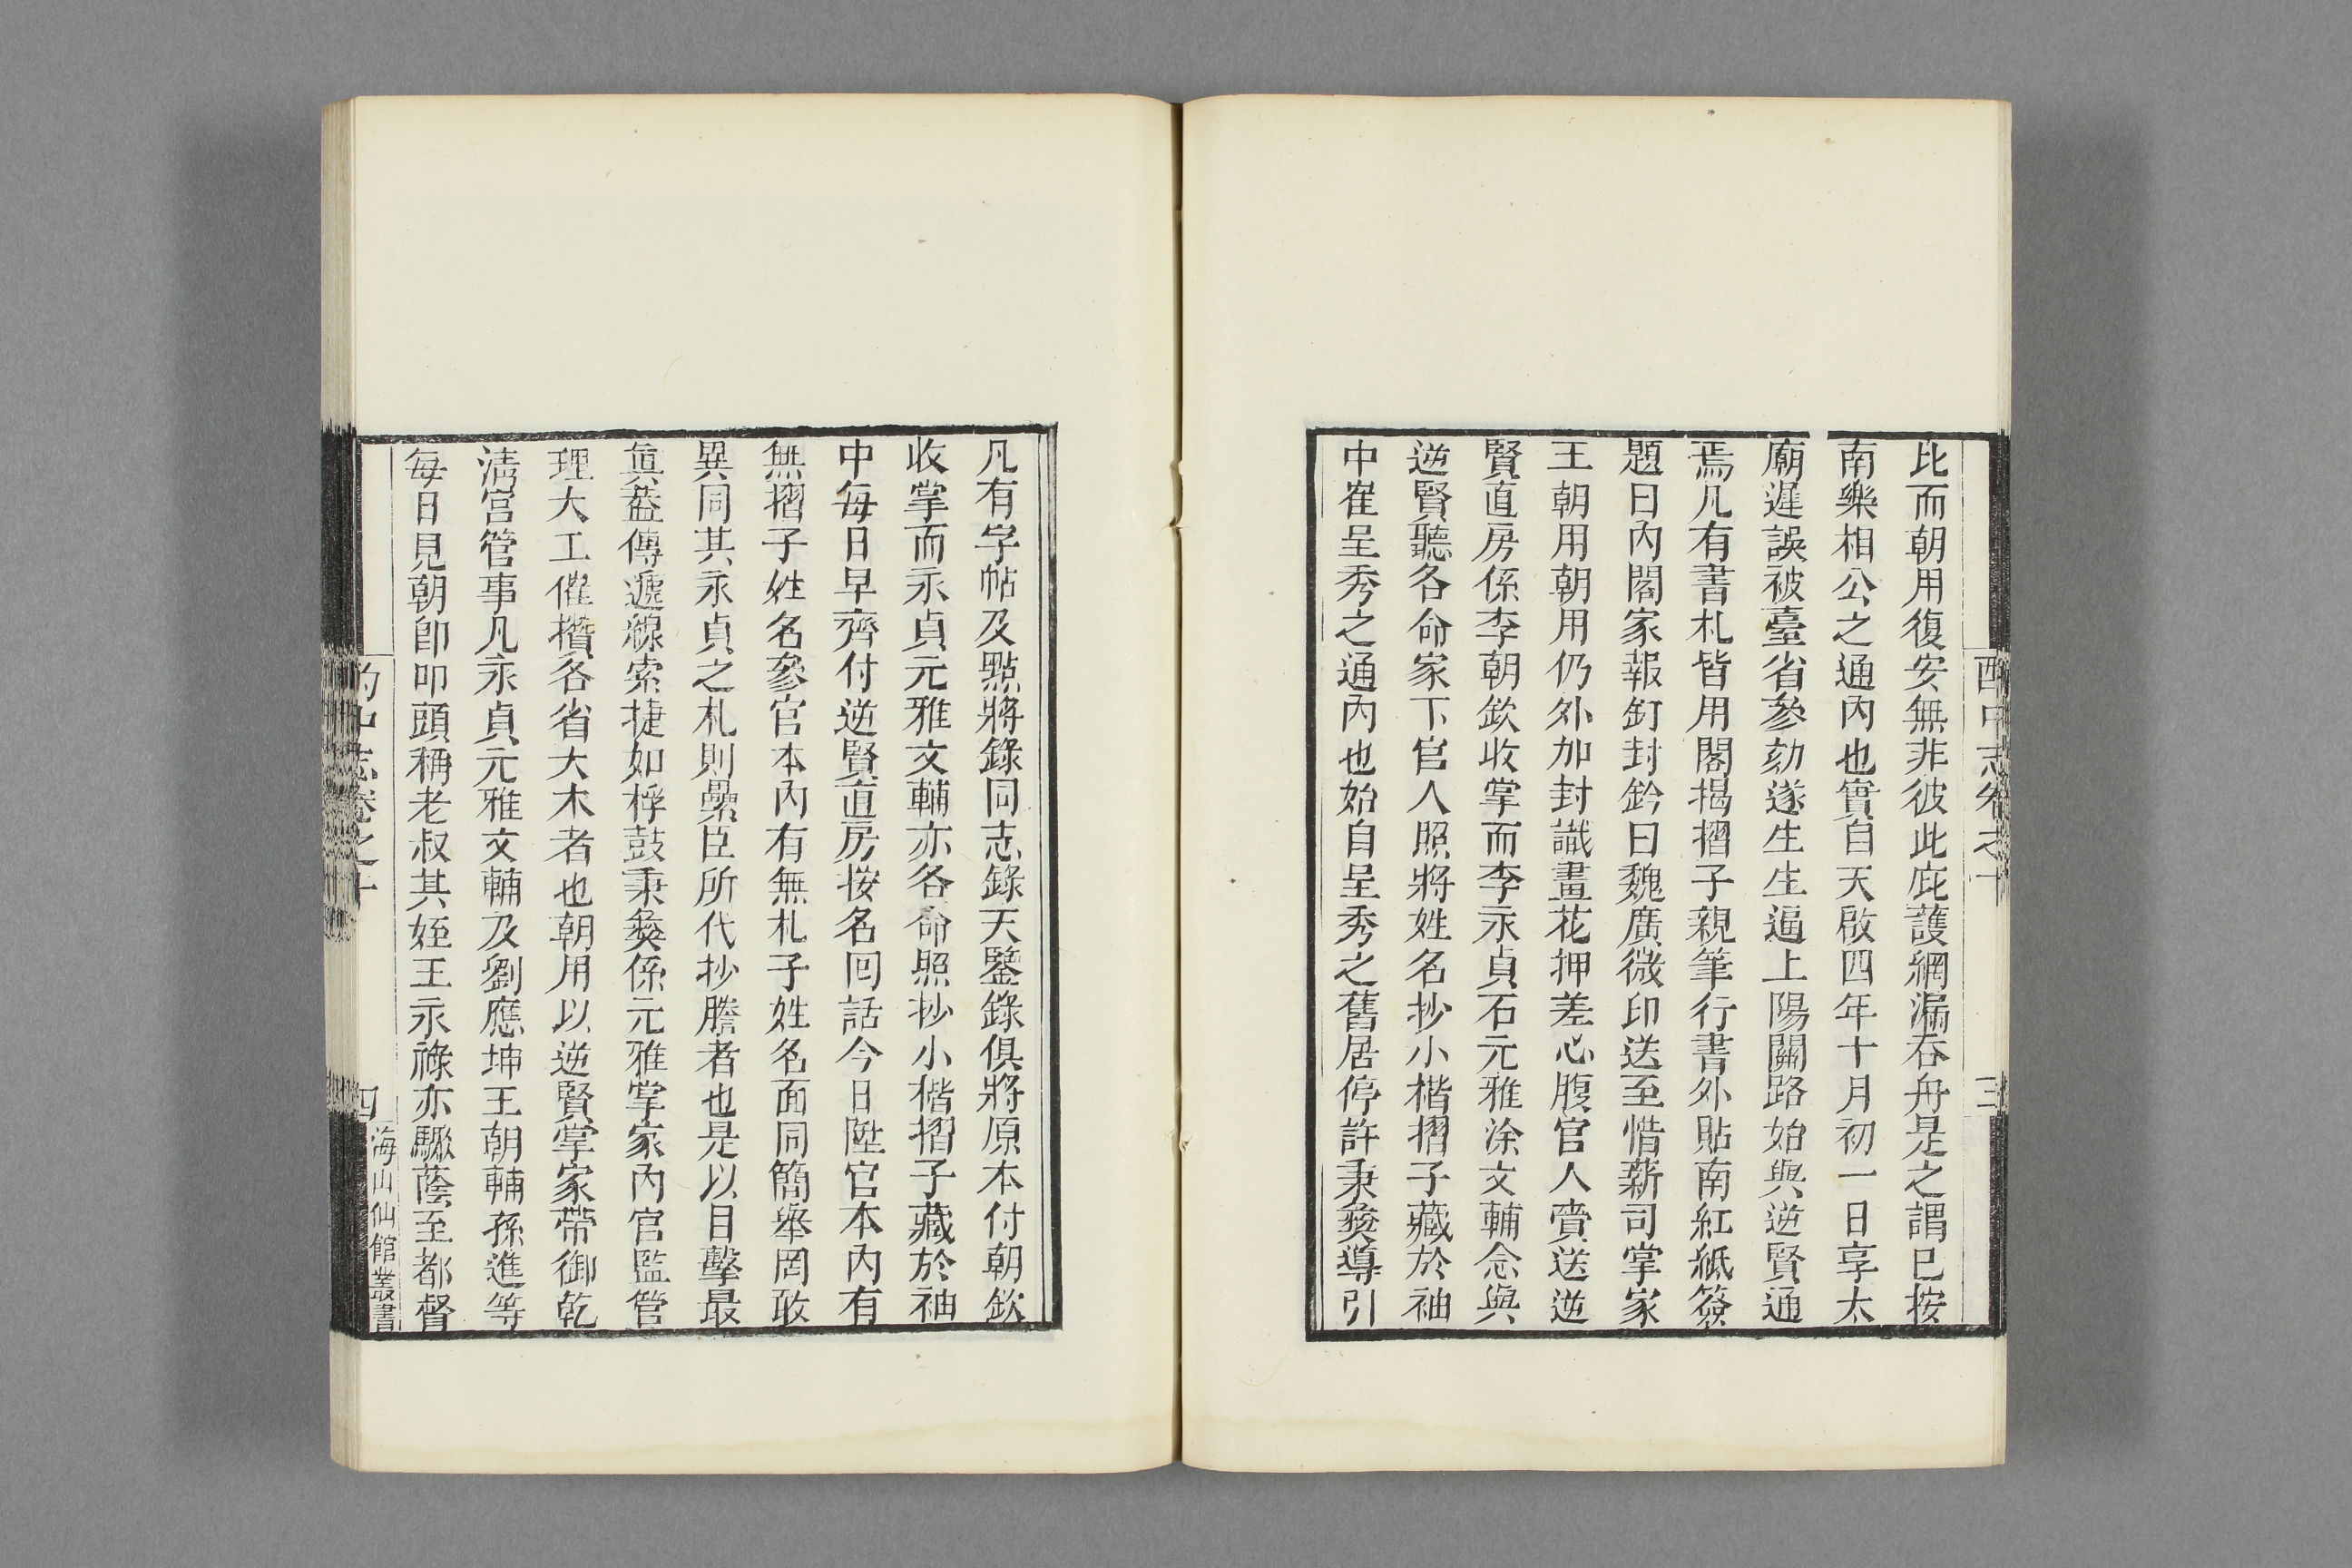 酌中志卷之十
三
比而朝用復安無非彼此庇護網漏吞舟是之謂巳按
南樂相公之通內也實自天啟四年十月初一日享太
廟遲誤被臺省參劾遂生生逼上陽關路始與逆賢通
焉凡有書札皆用閣揭摺子親筆行書外貼南紅紙簽
題曰內閣家報釘封鈐曰魏廣微印送至惜薪司掌家
王朝用朝用仍外加封識畫花押差心腹官人賫送逆
賢直房係李朝欽收掌而李永貞石元雅涂文輔念與
逆賢聽各命家下官人照將姓名抄小楷摺子藏於袖
中崔呈秀之通內也始自呈秀之舊居停許秉彝導引
凡有字帖及點將錄同志錄天鑒錄俱將原本付朝欽
收掌而永貞元雅文輔亦各命照抄小楷摺子藏於袖
中每日早齊付逆賢直房按名回話今日陞官本內有
無摺子姓名參官本內有無札子姓名面同簡舉罔敢
異同其永貞之札則纍臣所代抄謄者也是以目擊最
眞葢傳遞線索捷如桴鼓秉彝係元雅掌家內官監管
理大工催攢各省大木者也朝用以逆賢掌家帶御乾
清宮管事凡永貞元雅文輔及劉應坤王朝輔孫進等
每日見朝卽叩頭稱老叔其姪王永祿亦驟蔭至都督
酌中志卷之十
四
海山仙館叢書